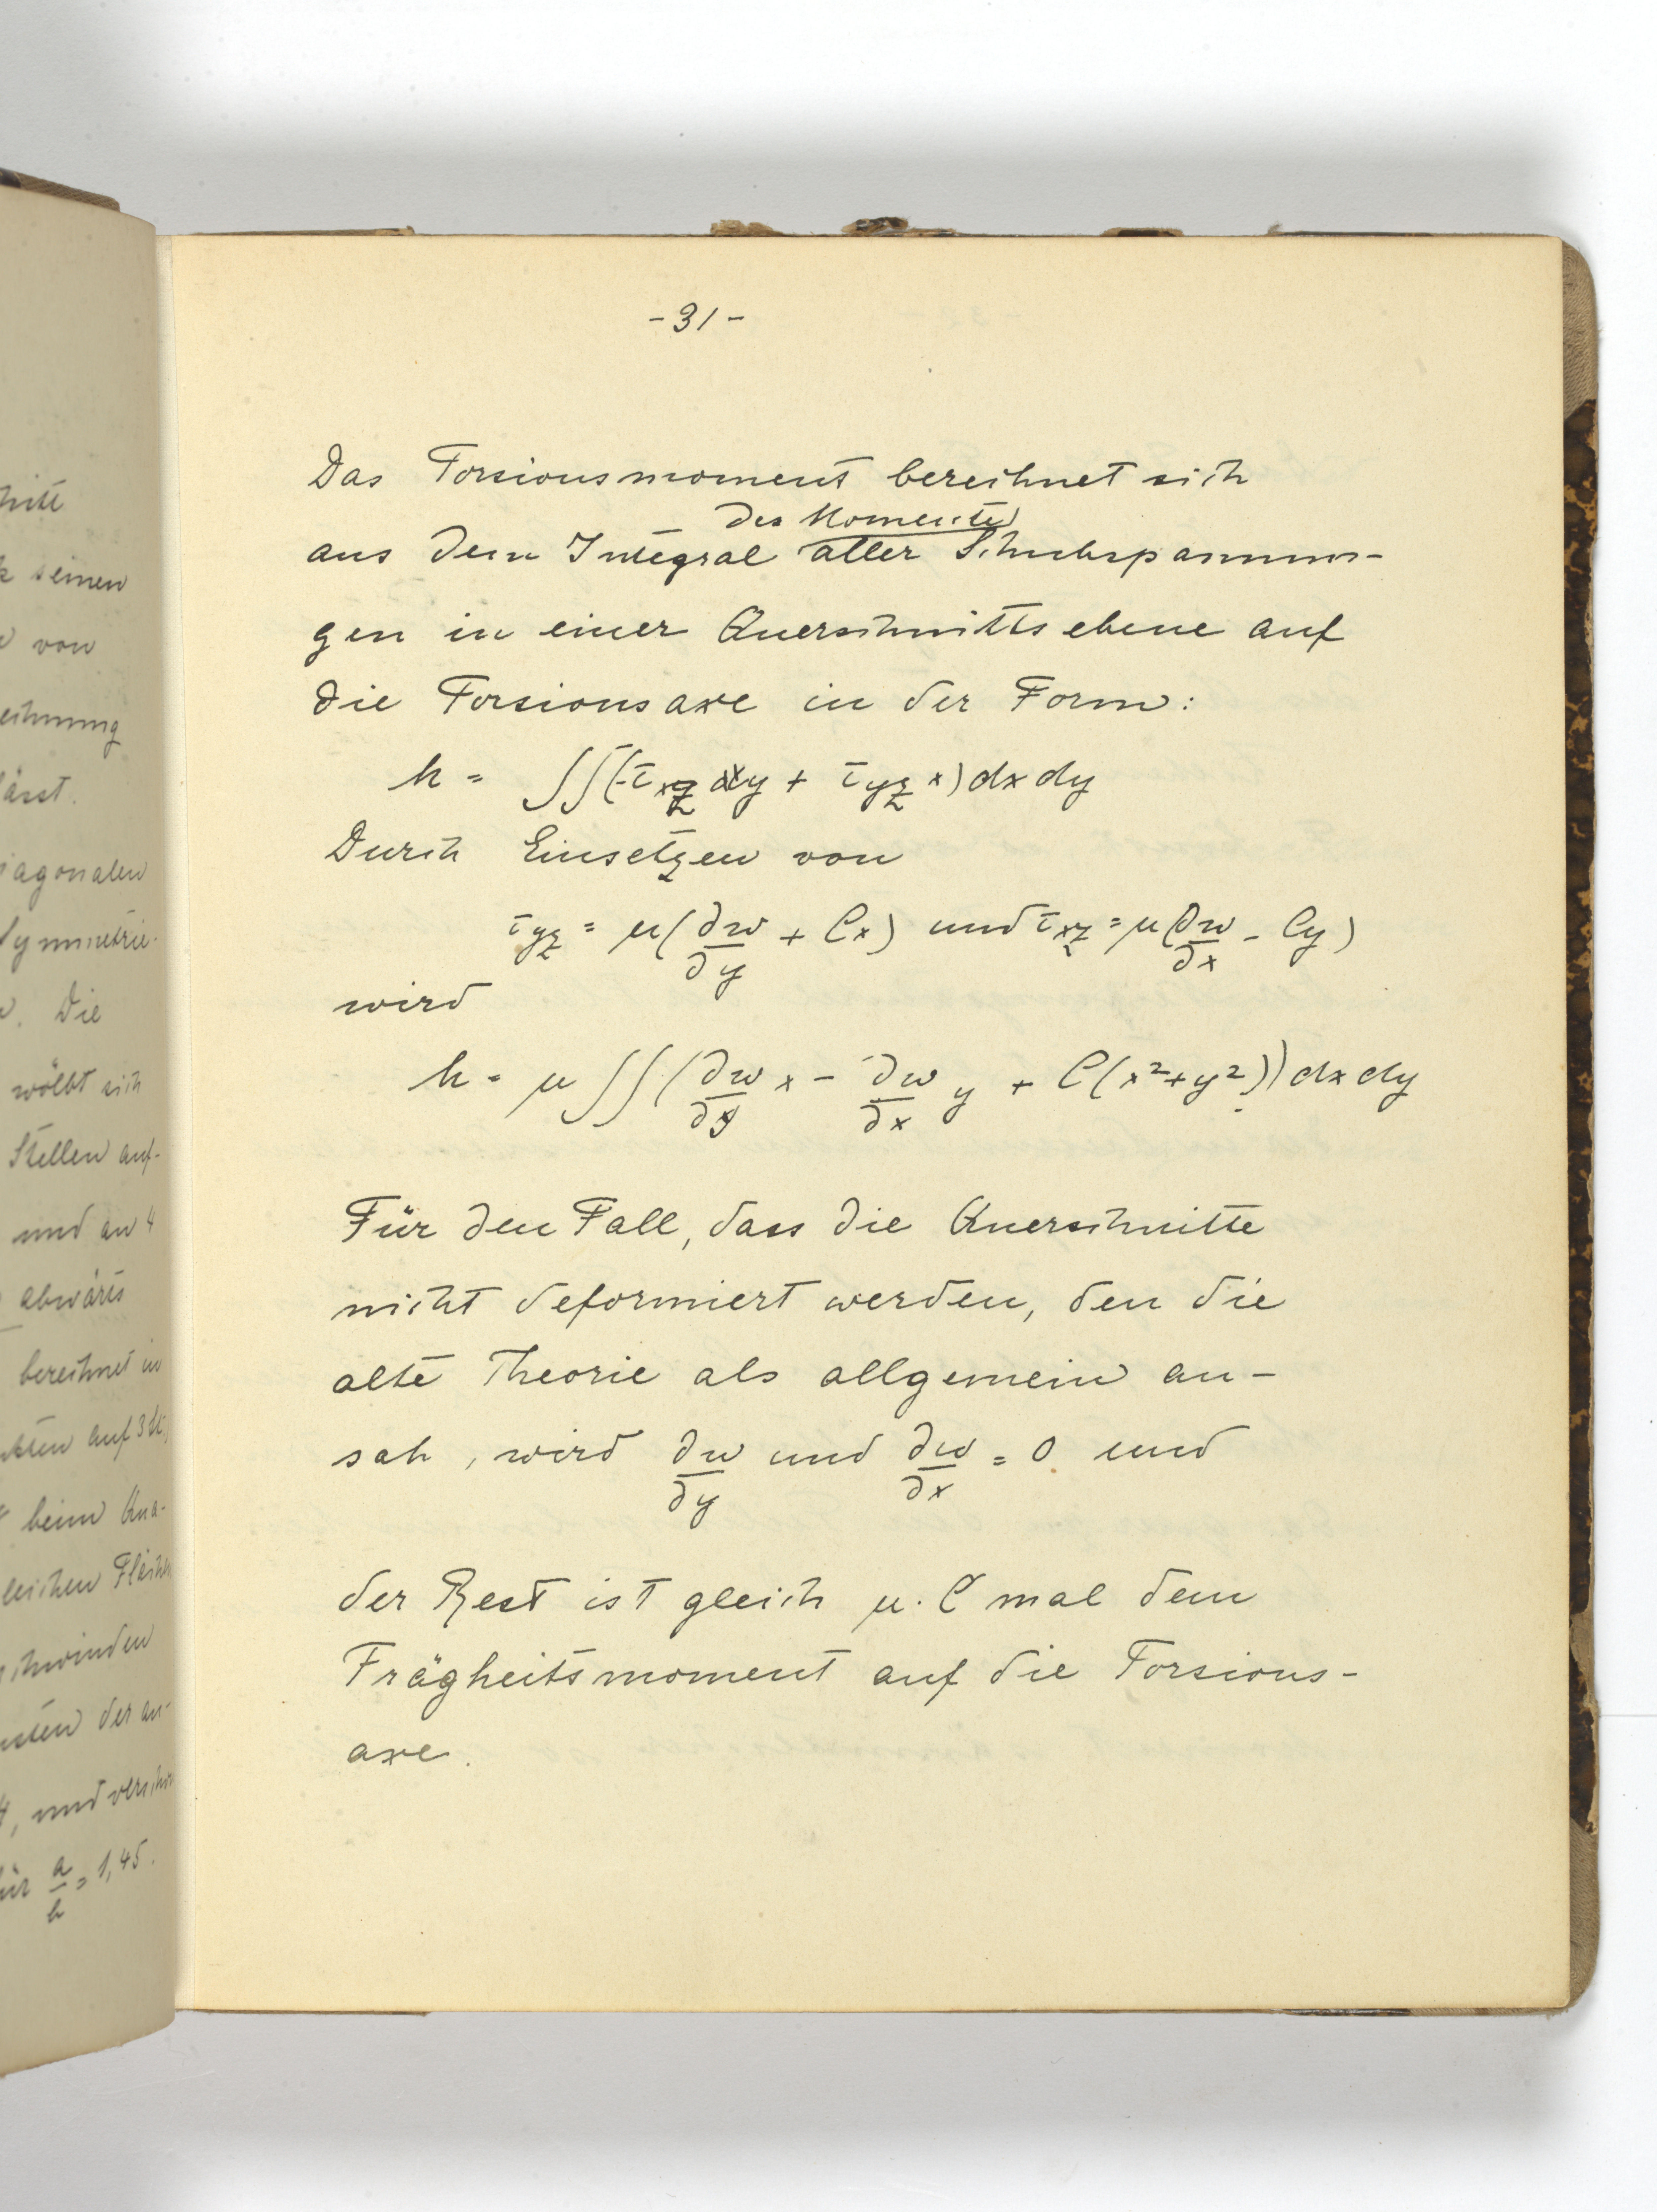 -31-
Das Torsionsmoment berechnet sich
der Momente
aus dem Integral aller Schubspannun-
gen in einer Querschnittsebene auf
die Torsionsaxe in der Form:
h = ∬(-τxz y + τyz x) dx dy
Durch Einsetzen von
τyz = μ(∂w/∂y + Cx) und τxz = μ(∂w/∂x - Cy)
wird
h = μ∬(∂w/∂y x - ∂w/∂x y + C(x²+y²)) dx dy
Für den Fall, dass die Querschnitte
nicht deformiert werden, den die
alte Theorie als allgemein an-
sah, wird ∂w/∂y und ∂w/∂x = 0 und
der Rest ist gleich μ. C mal dem
Trägheitsmoment auf die Torsions-
axe.
seinen
von
ässt.
iagonalen
Symmetrie-
Die
wölbt sich
Stellen auf-
und an 4
abwärts
berechnet in
auf 3
beim Qua-
leichen Fläche
hwinden
der an-
, und versch
a/b = 1,45.